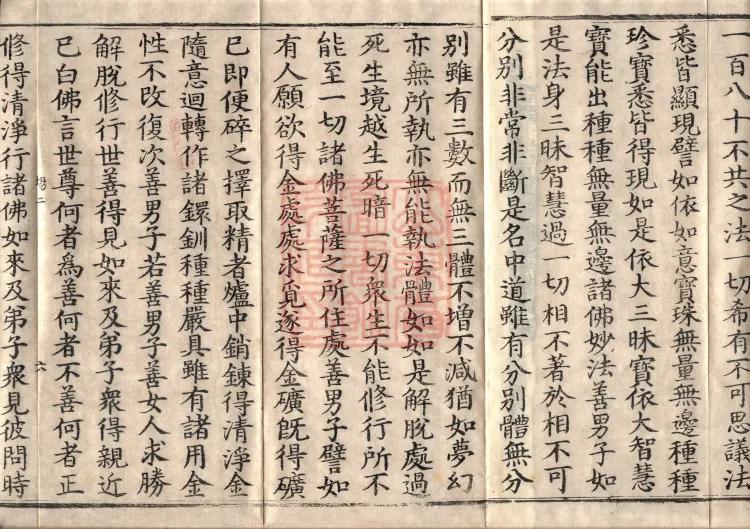 一百八十不共之法一切希有不可思議法
悉皆顯現譬如依如意寶珠無量無邊種種
珍寶悉皆得現如是依大三昧寶依大智慧
寶能出種種無量無邊諸佛妙法善男子如
是法身三昧智慧過一切相不著於相不可
分別非常非斷是名中道雖有分別體無分
別雖有三數而無三體不增不減猶如夢幻
亦無所執亦無能執法體如如是解脫處過
死生境越生死暗一切衆生不能修行所不
能至一切諸佛菩薩之所住處善男子譬如
有人願欲得金處處求覓遂得金礦旣得礦
已即便碎之擇取精者爐中銷鍊得清淨金
隨意迴轉作諸鐶釧種種嚴具雖有諸用金
性不改復次善男子若善男子善女人求勝
解脫修行世善得見如來及弟子衆得親近
已白佛言世尊何者爲善何者不善何者正
塲二
六
修得清淨行諸佛如來及弟子衆見彼問時